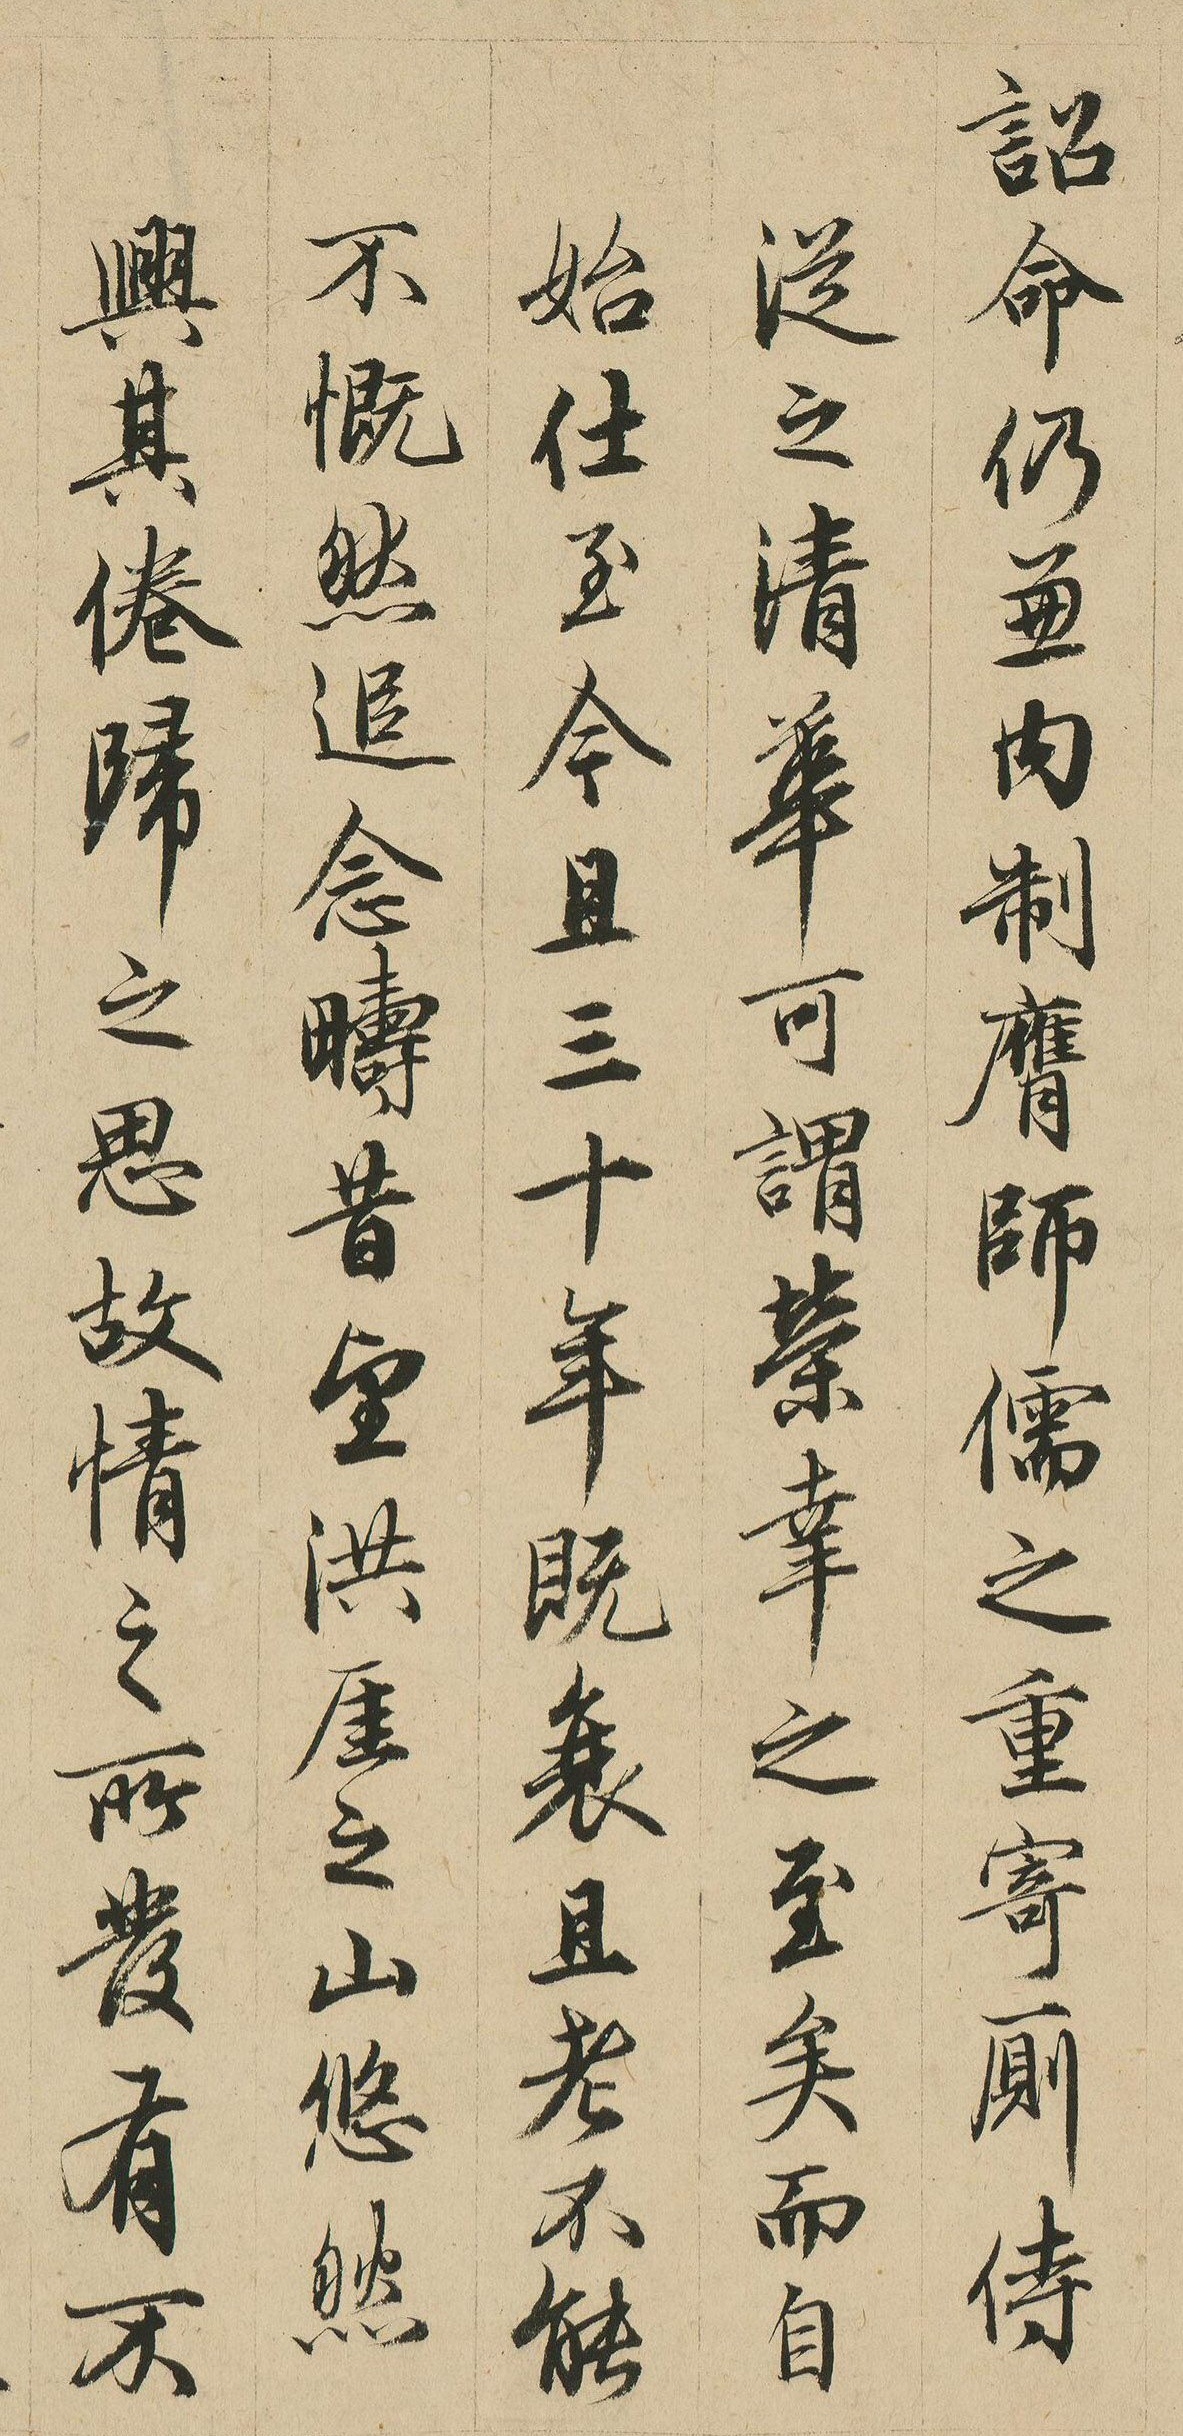 詔命仍兼内制膺師儒之重寄廁侍
從之清華可謂榮幸之至矣而自
始仕至今且三十年既衰且老不能
不慨然追念疇昔望洪厓之山悠然
興其倦歸之思故情之所發有不